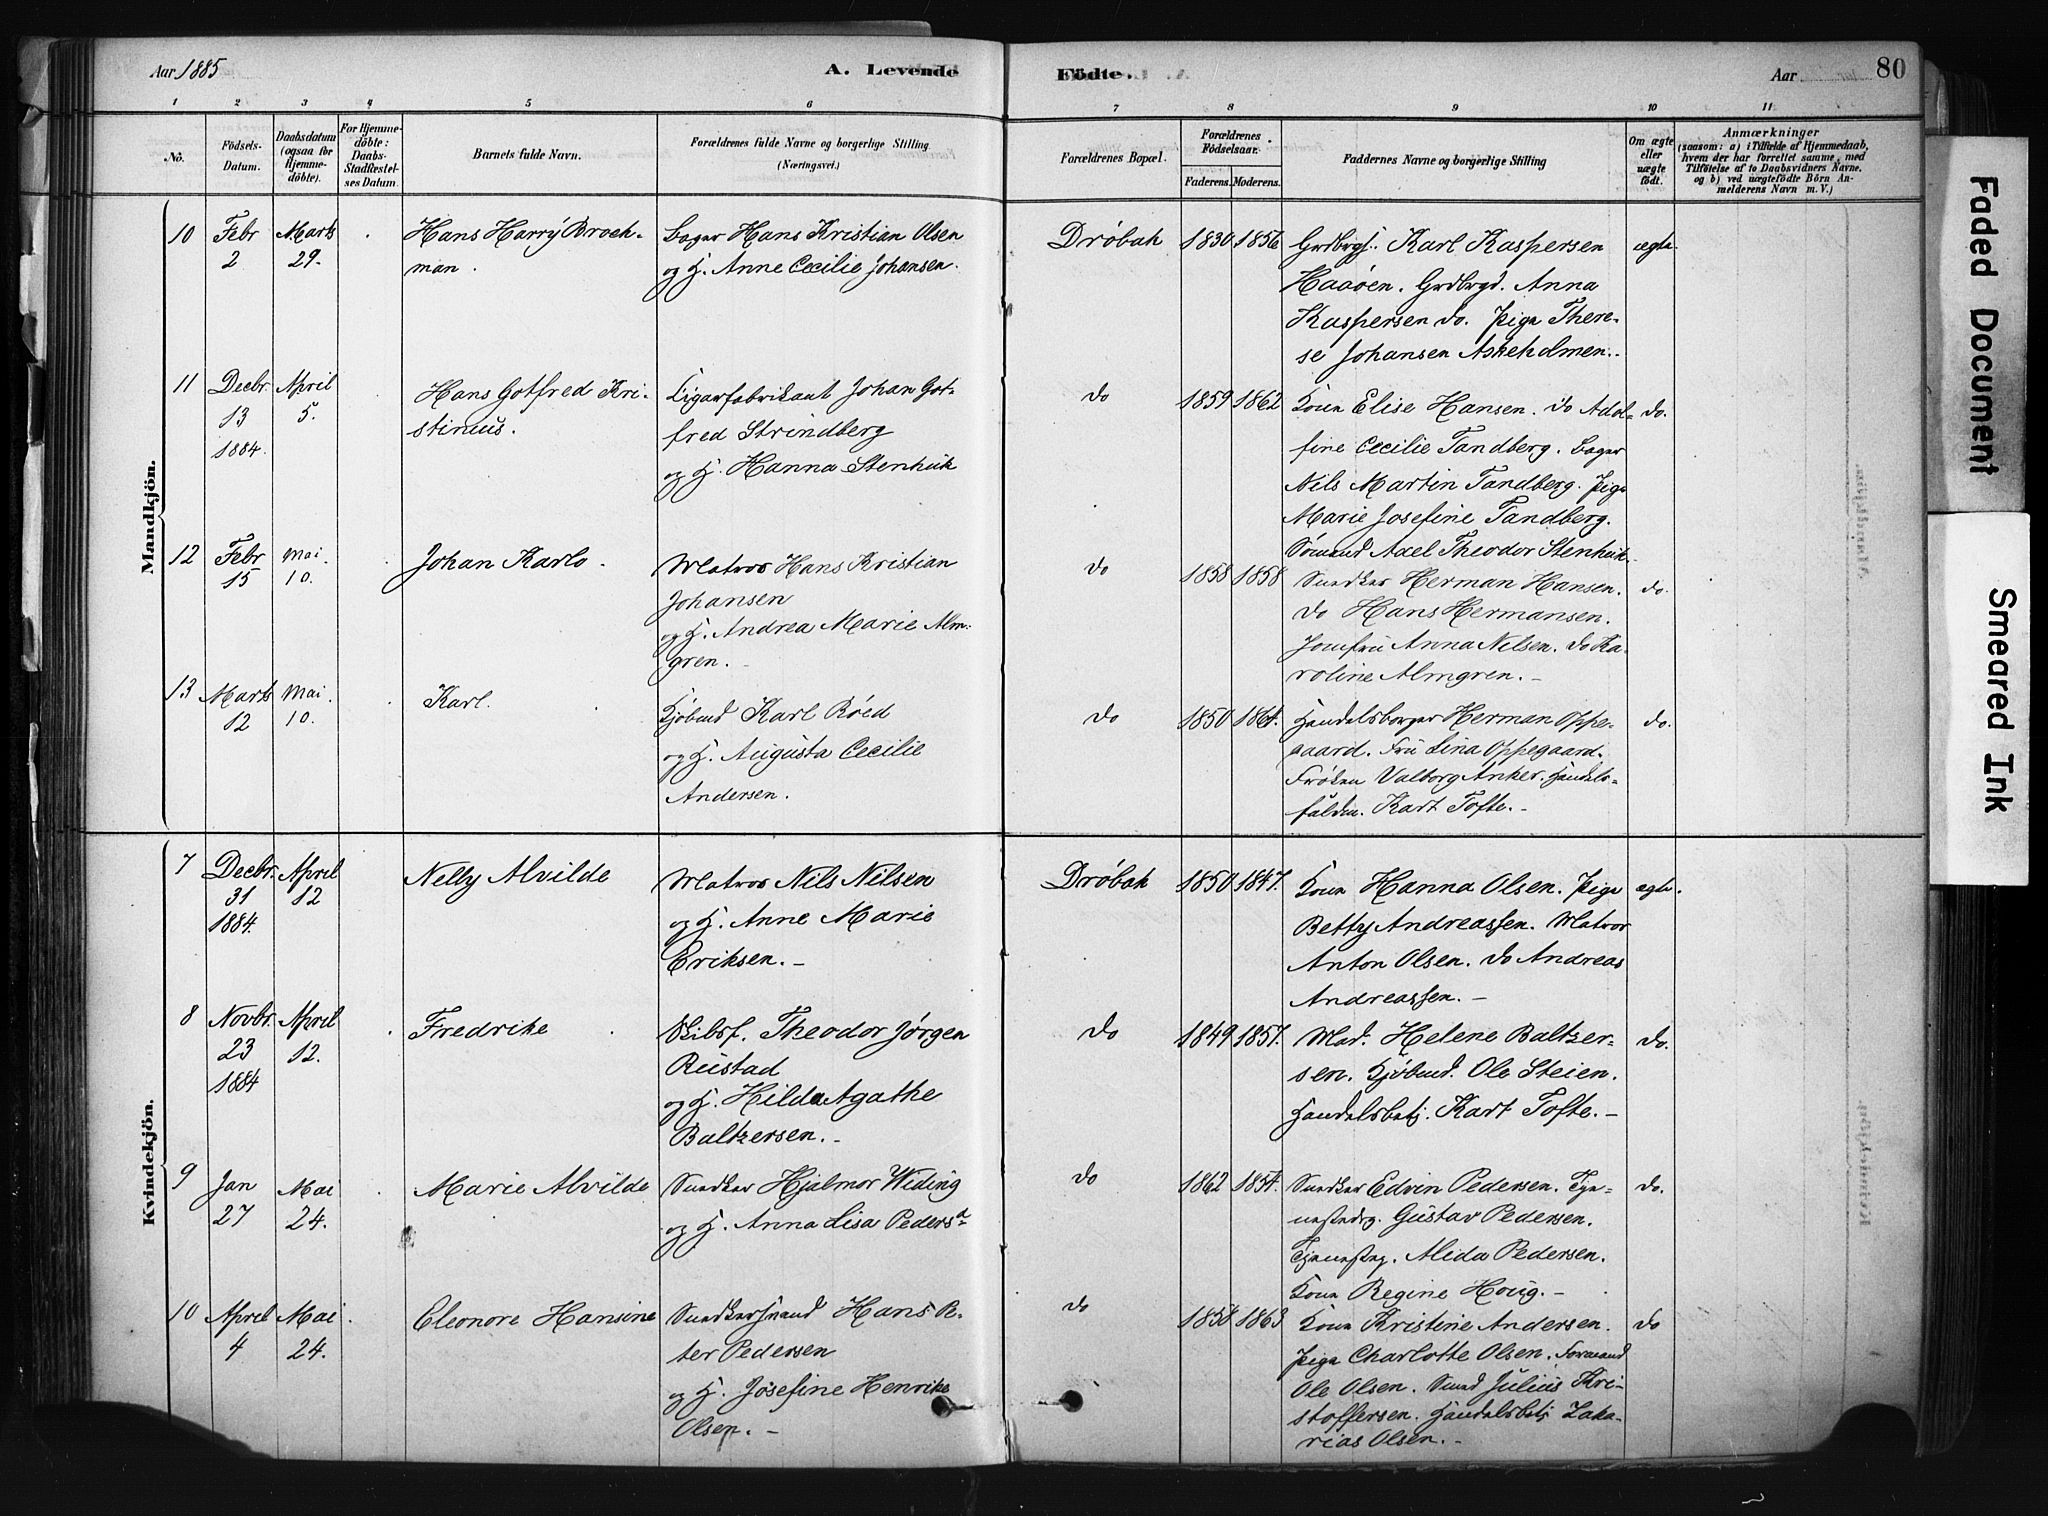 Aar 1885
A. Levende
Födte.
Aar
80
1 2 3 4 5 6 7 8 9 10 11
No.
Födsels-
Datum.
Daabsdatum
(ogsaa for
Hjemme-
döbte).
For Hjemme-
döbte:
Daabs-
Stadfæstel-
ses Datum.
Barnets fulde Navn.
Forældrenes fulde Navne og borgerlige Stilling
(Næringsvei.)
Forældrenes Bopæl.
Forældrenes
Födselsaar.
Faderens. Moderens.
Faddernes Navne og borgerlige Stilling
Om ægte
eller
uægte
födt.
Anmærkninger
(saasom: a) i Tilfælde af Hjemmedaab,
hvem der har forrettet samme, med
Tilföielse af to Daabsvidners Navne,
og b) ved uægtefödte Börn An-
melderens Navn m. V.)
Mandkjön.
10
Febr
2
Marts
29.
Hans Harry Brock-
man.
Bager Hans Kristian Olsen
og H. Anne Cecilie Johansen.
Drøbak
1830 1856
Grdbrgs. Karl Kaspersen
Haaøen. Grdbrgd. Anna
Kaspersen do. Pige There-
se Johansen Askeholmen.
ægte
11
Decbr
13
1884.
April
5.
Hans Gotfred Kri-
stinus.
Cigarfabrikant Johan Got-
fred Strindberg
og H. Hanna Stenhuk
do
1859 1862
Kone Elise Hansen. do Adol-
fine Cecilie Tandberg. Bager
Nils Martin Tandberg. Pige
Marie Josefine Tandberg.
Sømand Axel Theodor Stenhuk.
do.
12
Febr
15
Mai
10.
Johan Karlo.
Matros Hans Kristian
Johansen
og H. Andrea Marie Alm-
gren.
do
1858 1858
Snedker Herman Hansen.
do Hans Hermansen.
Jomfru Anna Nelsen. do Ka-
roline Almgren. -
do.
13
Marts
12
Mai
10.
Karl.
Kjøbmd Karl Røed
og H. Augusta Cecilie
Andersen.
do
1850 1864.
Handelsborger Herman Oppe-
gaard. Fru Lina Oppegaard.
Frøken Valborg Anker. Handels-
fuldm. Kart Tofte. -
do.
Kvindekjön.
7
Decbr.
31
1884.
April
12
Nelly Alvilde
Matros Nils Nilsen
og H. Anne Marie
Eriksen. -
Drøbak
1850 1847.
Kone Hanna Olsen. Pige
Betty Andreassen. Matros
Anton Olsen. do Andreas
Andreassen. -
ægte.
8
Novbr.
23
1884
April
12.
Fredrike
Skibsf. Theodor Jørgen
Rustad
og H. Hilda Agathe
Baltzersen. -
do
1849 1857.
Mad. Helene Baltzer-
sen. Kjøbmd. Ole Steien.
Handelsbetj. Kart Tofte. -
do.
9
Jan
27
Mai
24.
Marie Alvilde
Snedker Hjalmor Widing
og H. Anna Lisa Pedersn
do
1862 1854.
Snedker Edvin Pedersen. Tje-
nestedrg. Gustav Pedersen.
Tjenestpg. Alida Pedersen.
Kone Regine Houg. -
do.
10
April
4
Mai
24.
Eleonore Hansine
Snedkersvend Hans Pe-
ter Pedersen
og H. Josefine Henrike
Olsen. -
do
1858 1863
Kone Kristine Andersen.
Pige Charlotte Olsen. Formand
Ole Olsen. Smed Julius Kri-
stoffersen. Handelsbetj Zaka-
rias Olsen. -
do
Faded Document
Smeared Ink